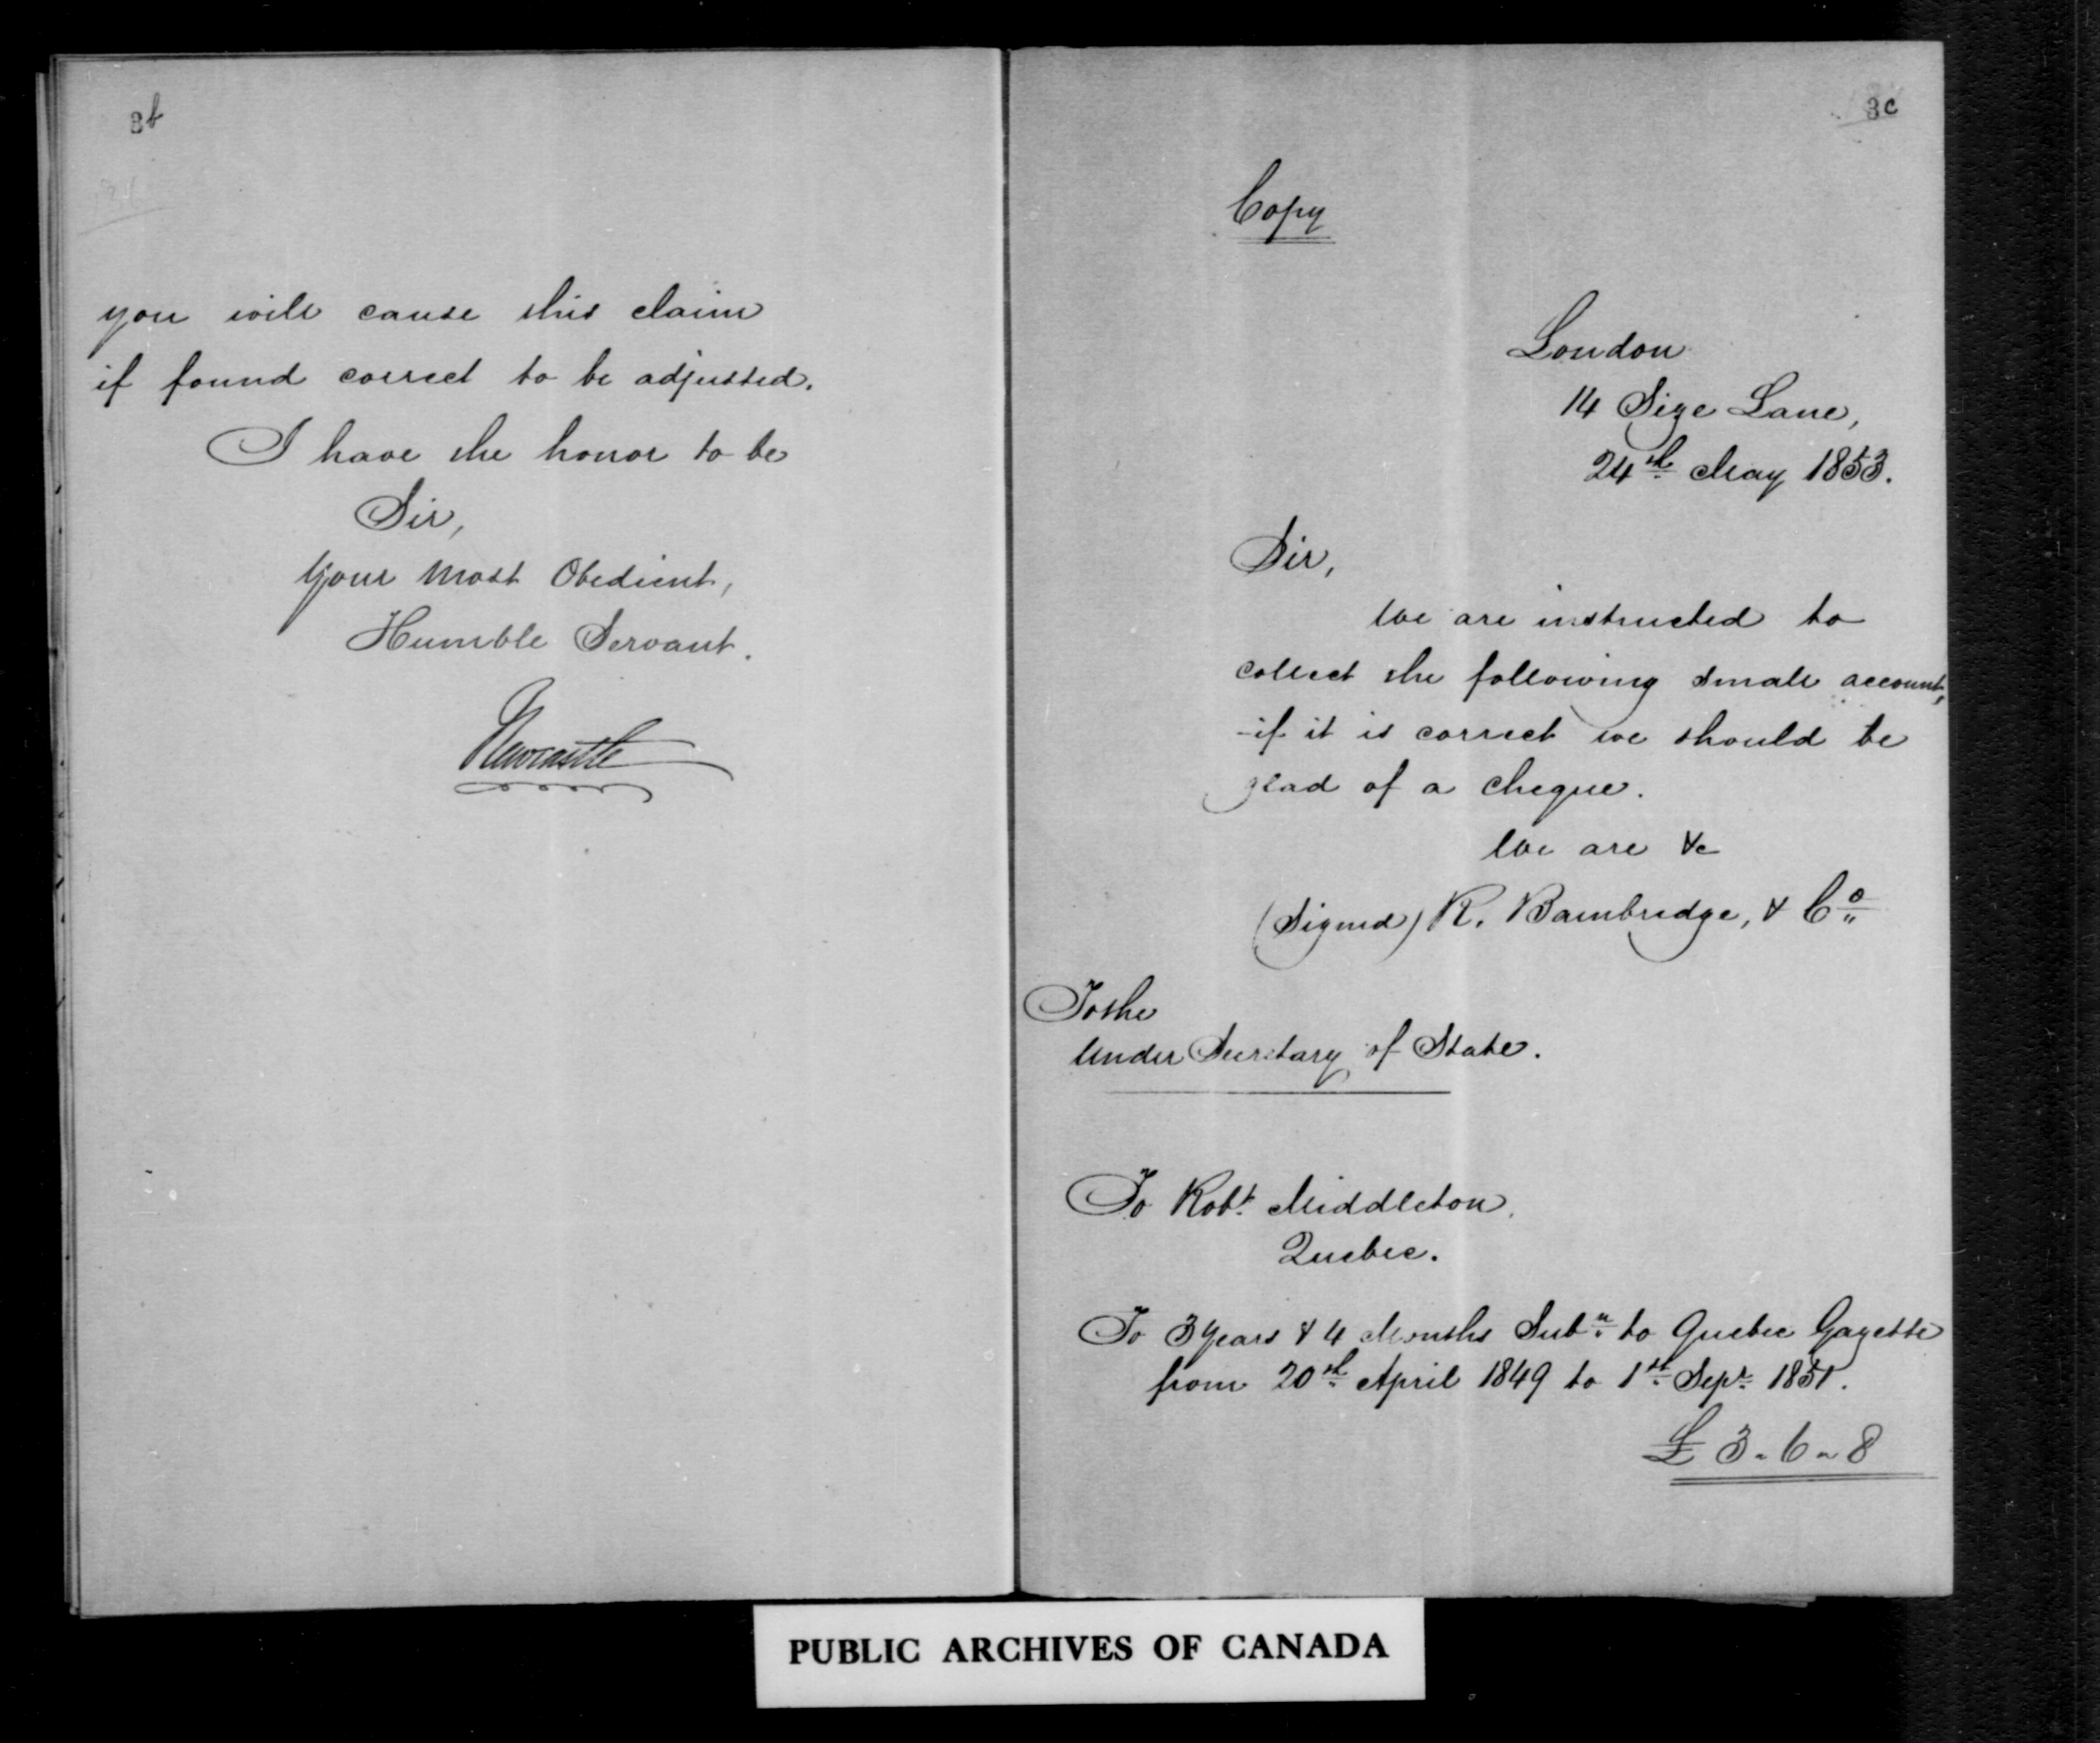 3b
you will cause this claim
if found correct to be adjusted.
I have the honor to be
Sir,
Your Most Obedient,
Humble Servant.
Newcastle
3c
Copy
London
14 Size Lane,
24th May 1853.
Sir,
We are instructed to
collect the following small account,
if it is correct we should be
glad of a cheque.
We are &c
(Signed) R. Bambridge, & Co
To the
Under Secretary of State.
To Robt. Middleton,
Quebec.
To 3 Years & 4 Months Subn. to Quebec Gazette
from 20th April 1849 to 1st Sept. 1851.
£ 3-6-8
PUBLIC ARCHIVES OF CANADA